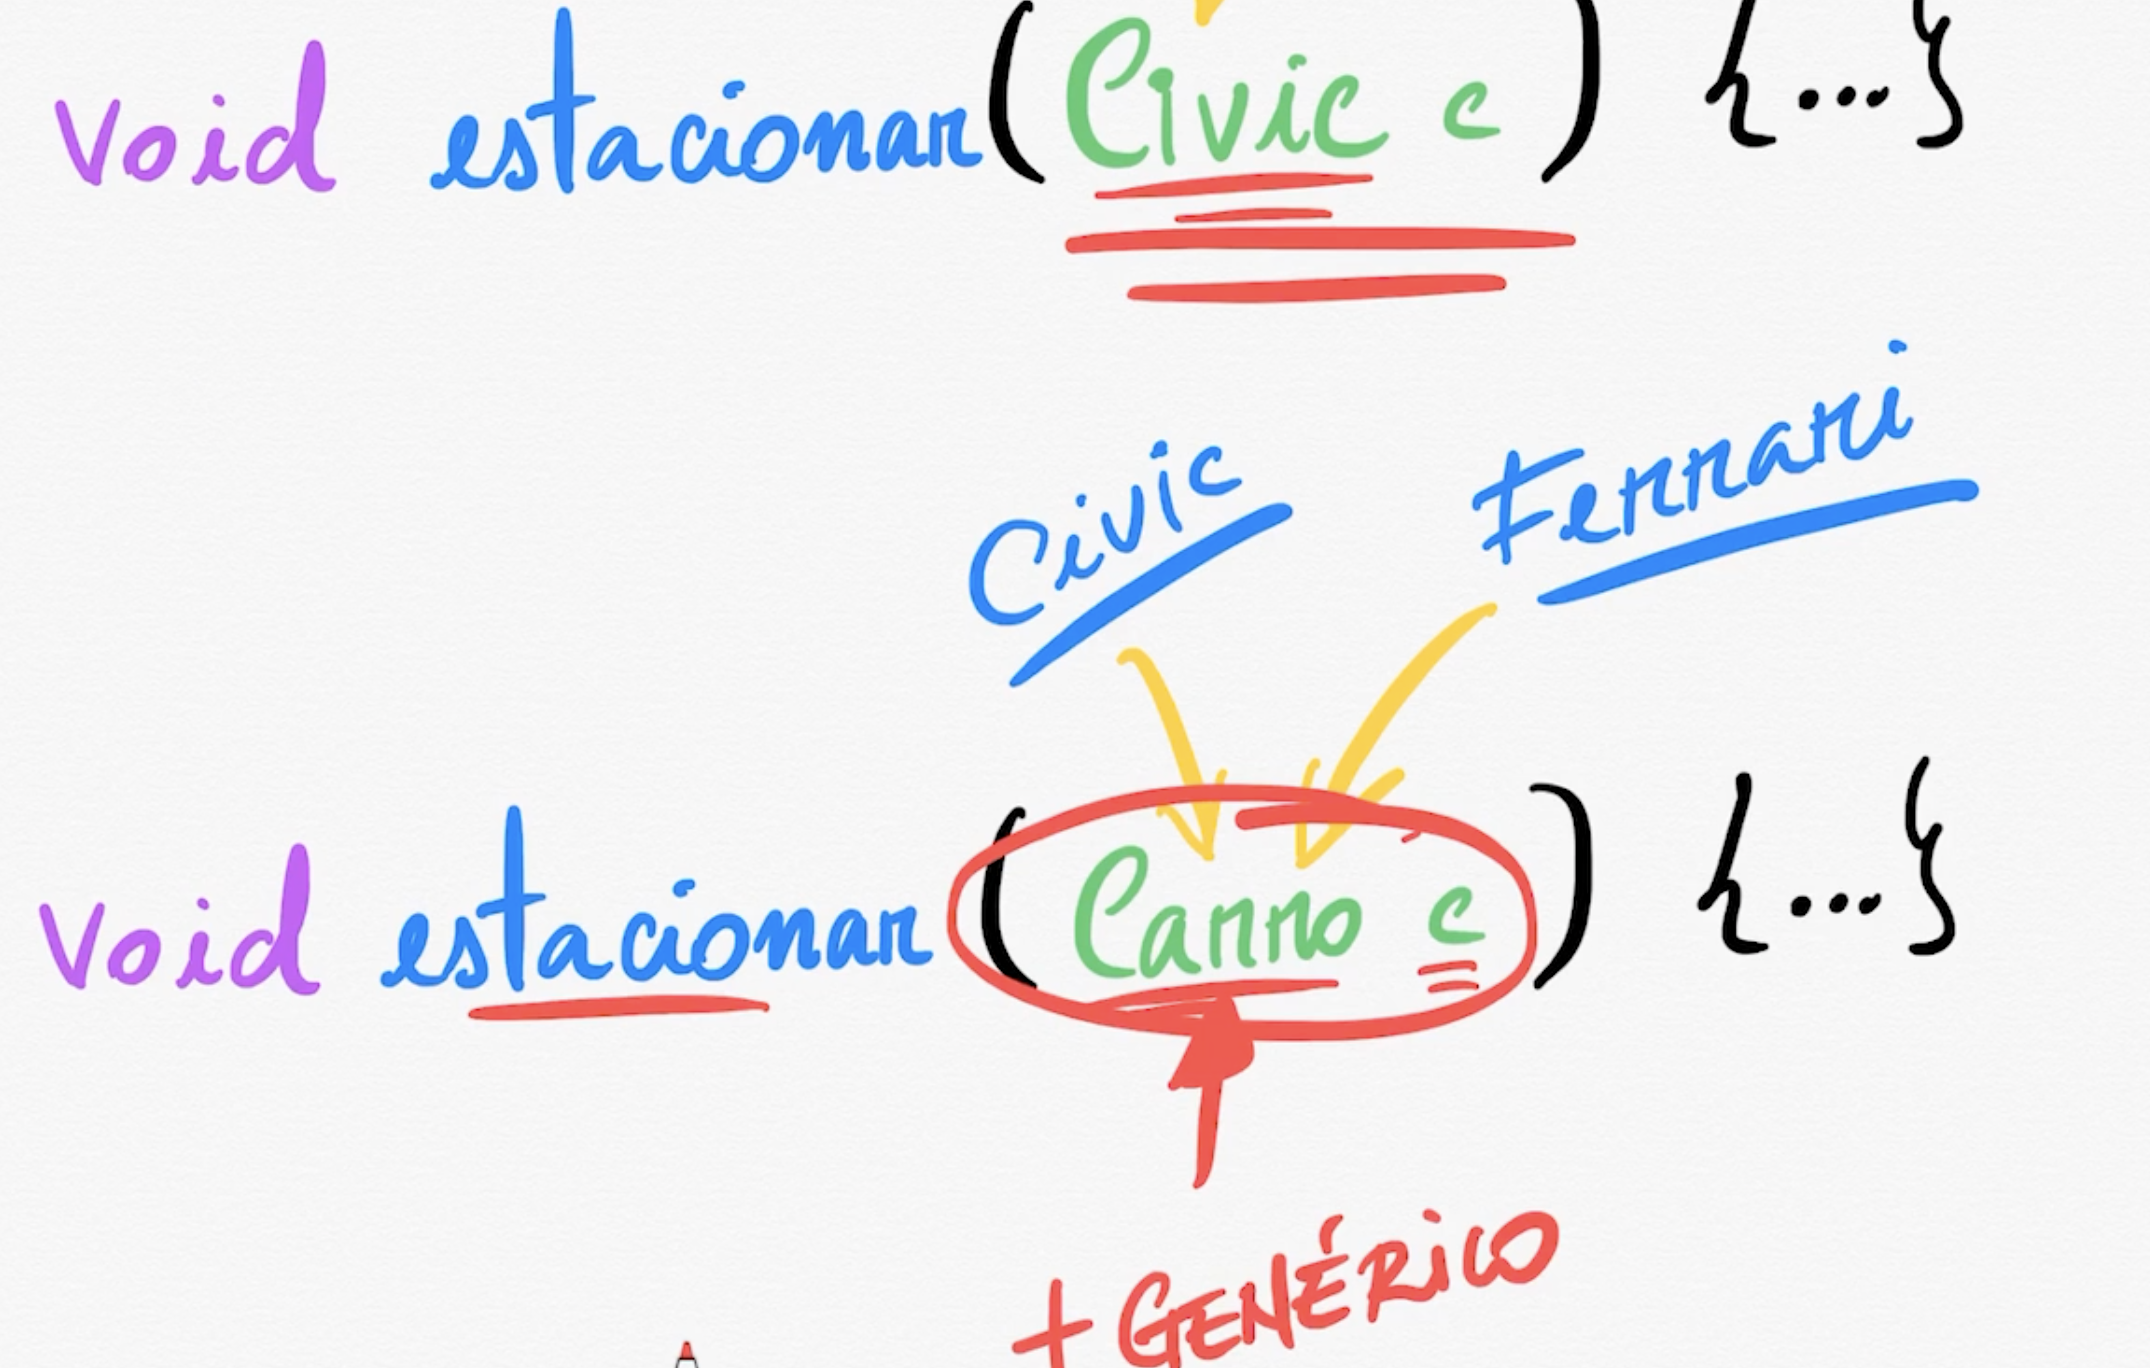 void estacionar(Civic c) {...}
Civic Ferrari
void estacionar(Carro c) {...}
+ GENÉRICO